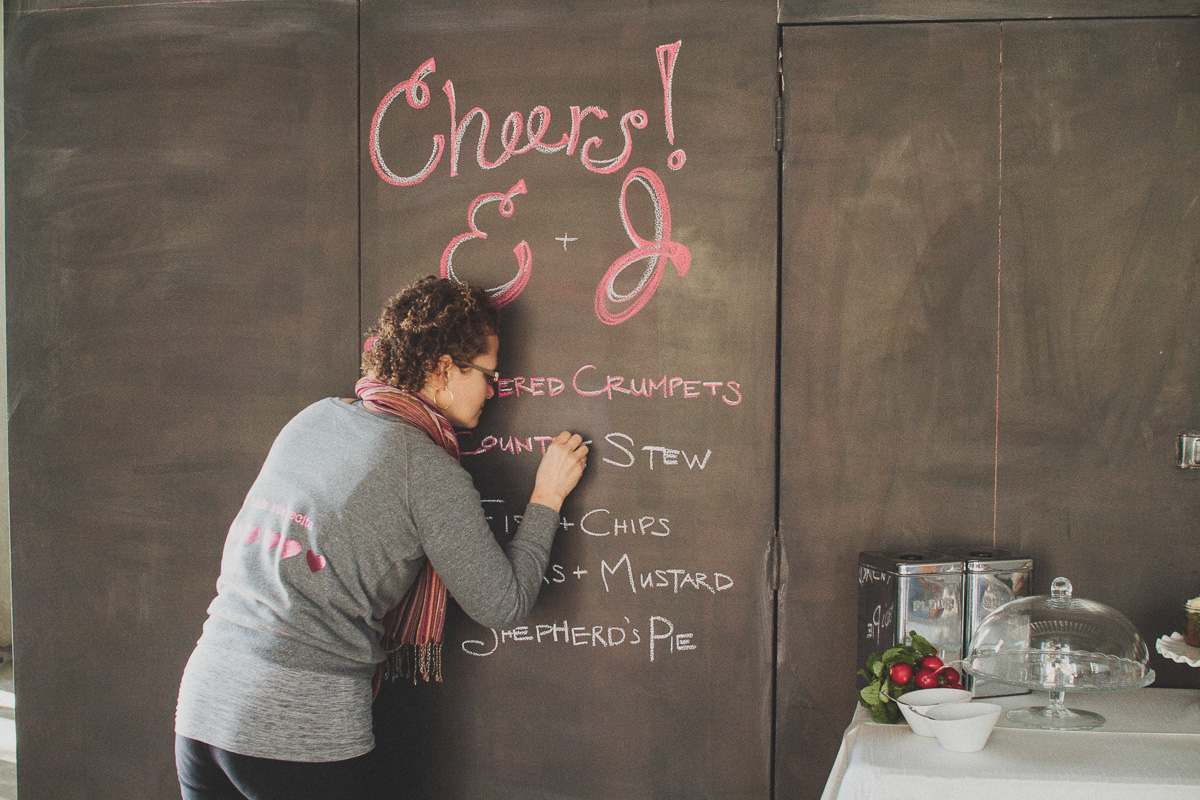 Cheers!
E + J
ERED CRUMPETS
COUNT STEW
FIS + CHIPS
S + MUSTARD
SHEPHERD'S PIE
FLOUR